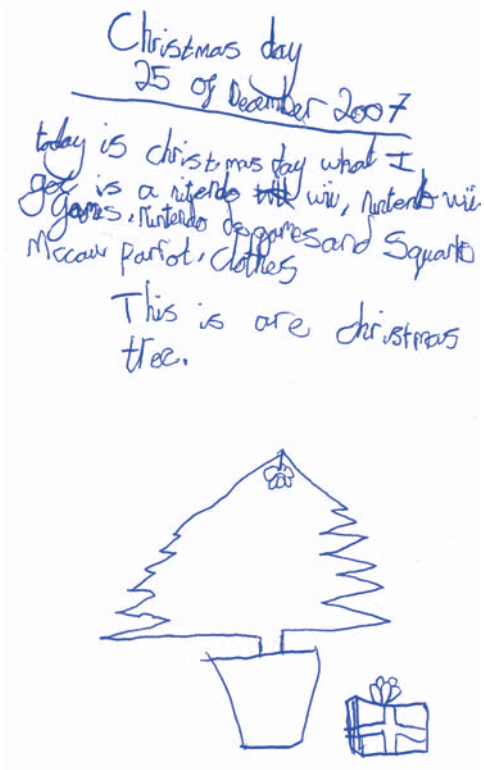 Christmas day
25 of December 2007
today is christmas day what I
got is a nitendo wii, nintendo wii
games, nintendo ds games and Squark
Mccaw parrot, clothes
This is are christmas
tree.